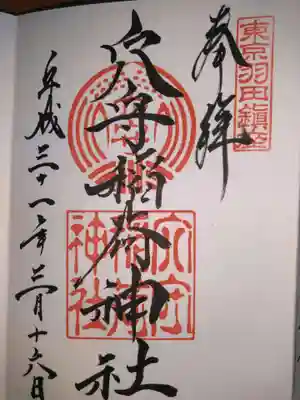 東京羽田鎭座
奉拝
穴守稲荷神社
穴守稲荷神社
平成三十一年三月十六日